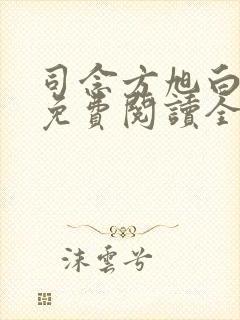 司念方旭白
免費閱讀全
沫雲兮